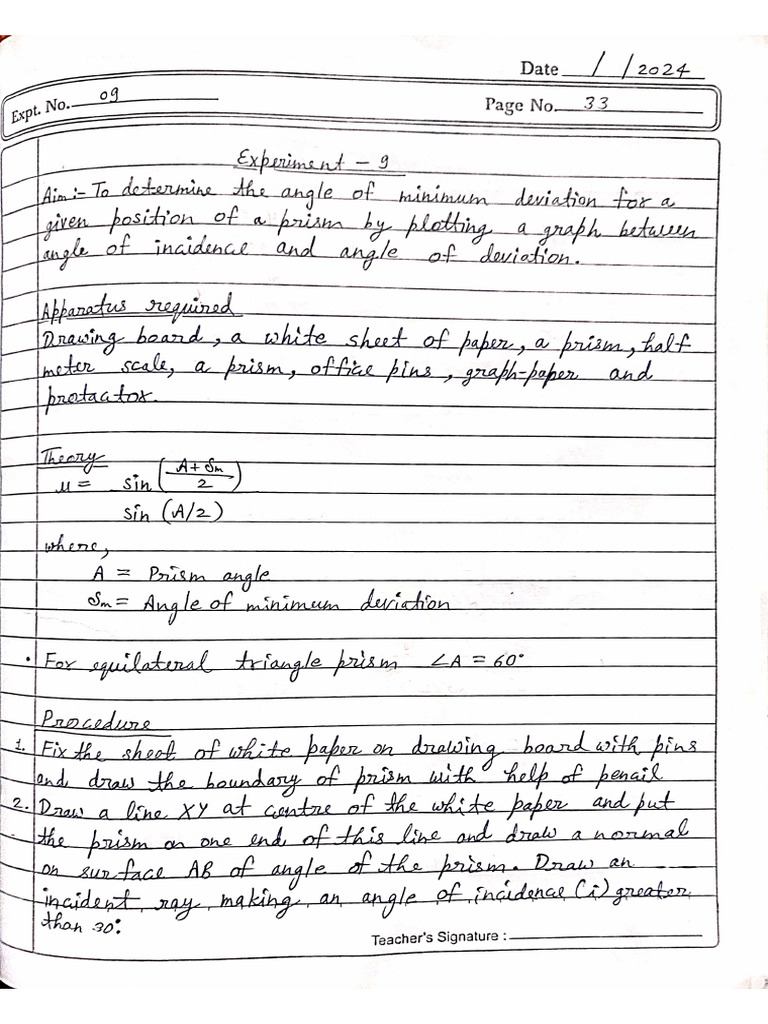 Date / / 2024
Expt. No. 09
Page No. 33
Experiment - 9
Aim:- To determine the angle of minimum deviation for a
given position of a prism by plotting a graph between
angle of incidence and angle of deviation.
Apparatus required
Drawing board, a white sheet of paper, a prism, half
meter scale, a prism, office pins, graph-paper and
protactor.
Theory
μ = sin (A + δm / 2)
sin (A/2)
where,
A = Prism angle
δm = Angle of minimum deviation
• For equilateral triangle prism ∠A = 60°
Procedure
1. Fix the sheet of white paper on drawing board with pins
and draw the boundary of prism with help of pencail
2. Draw a line XY at centre of the white paper and put
the prism on one end of this line and draw a normal
on surface AB of angle of the prism. Draw an
incident ray making an angle of incidence (i) greater
than 30°.
Teacher's Signature :